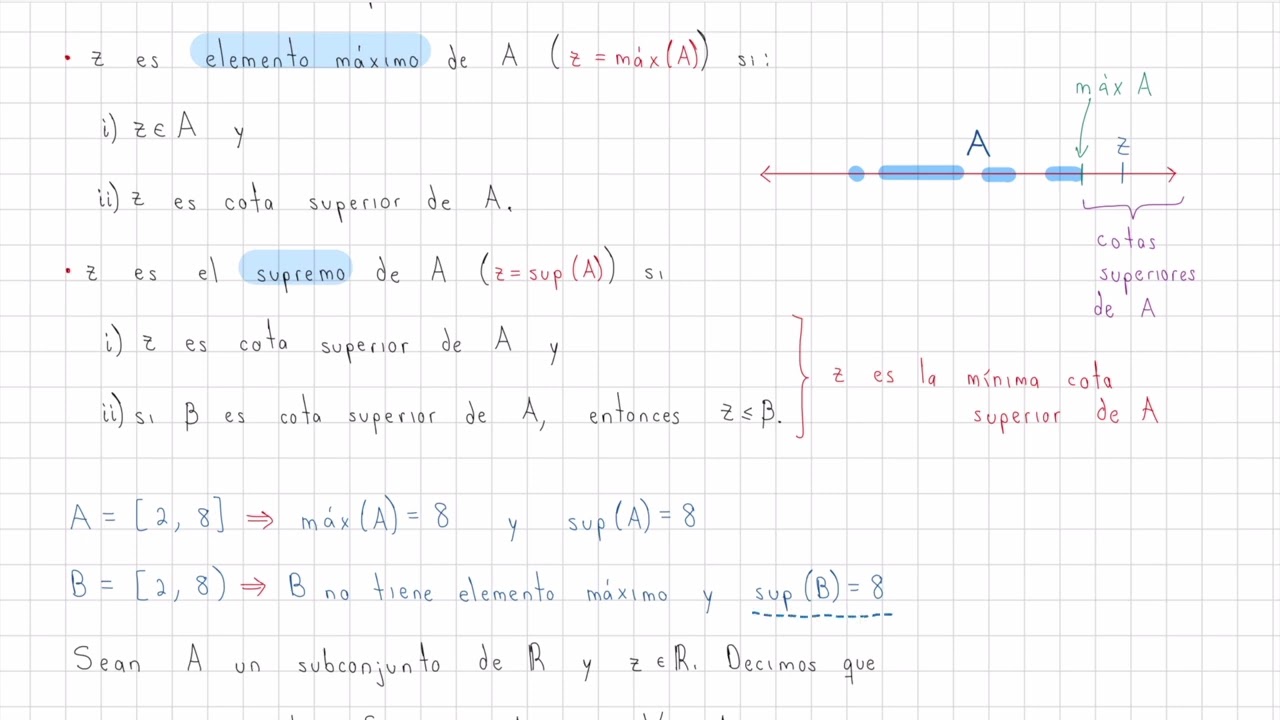 • z es elemento máximo de A (z = máx(A)) si:
i) z ∈ A y
ii) z es cota superior de A.
máx A
A
z
cotas
superiores
de A
• z es el supremo de A (z = sup(A)) si
i) z es cota superior de A y
ii) si β es cota superior de A, entonces z ≤ β.
z es la mínima cota
superior de A
A = [2, 8] ⇒ máx(A) = 8 y sup(A) = 8
B = [2, 8) ⇒ B no tiene elemento máximo y sup(B) = 8
Sean A un subconjunto de ℝ y z ∈ ℝ. Decimos que